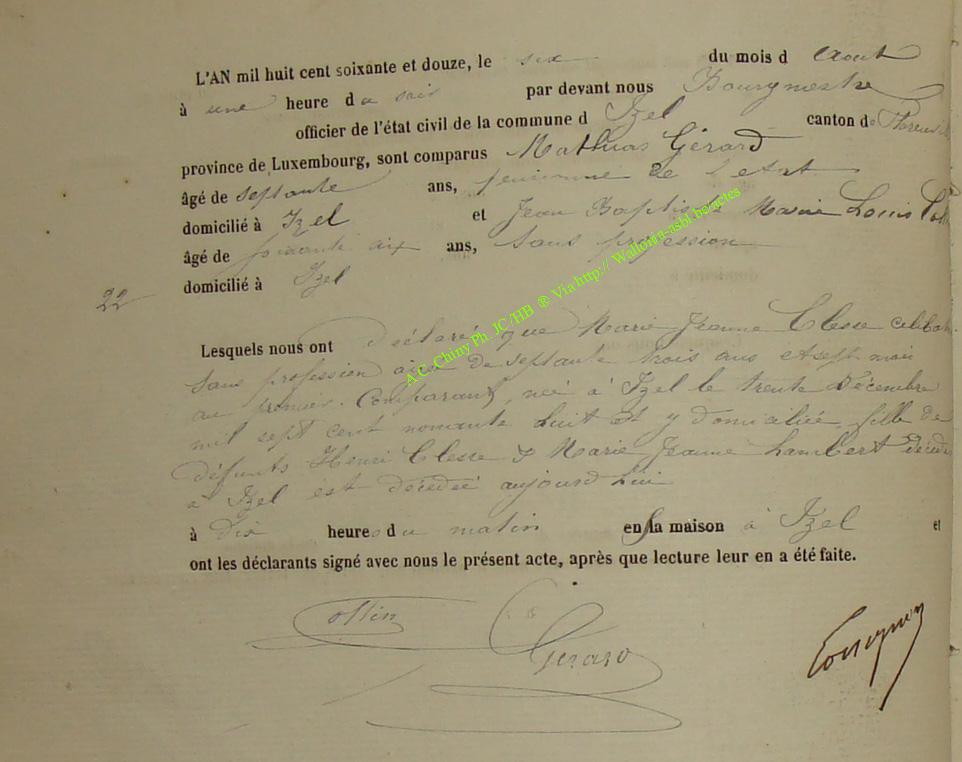 L'AN mil huit cent soixante et douze, le six du mois d Aout
à une heure du soir par devant nous Bourgmestre
officier de l'état civil de la commune d Izel canton de
province de Luxembourg, sont comparus Mathias Gérard
âgé de septante ans, pensionné de l'etat
domicilié à Izel et Jean Baptiste Marie Louis
âgé de soixante six ans, sans profession
domicilié à Izel
22
Lesquels nous ont déclaré que Marie Jeanne Clesse
sans profession agée de septante trois ans et sept mois
Comparant, née à Izel le trente Décembre
mil sept cent nonante huit et y domiciliée, fille de
défunts Henri Clesse & Marie Jeanne Lambert
à Izel est décédée aujourd'hui
à dix heures du matin en sa maison à Izel et
ont les déclarants signé avec nous le présent acte, après que lecture leur en a été faite.
Collin
Gérard
A.C. Chiny Ph. JC/HB ® Via http:// Wallonia-asbl.be/actes